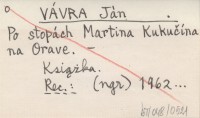 VÁVRA Ján .
Po stopách Martina Kukučína
na Orave. —
Knižka.
Rec.: (ngr) 1962...